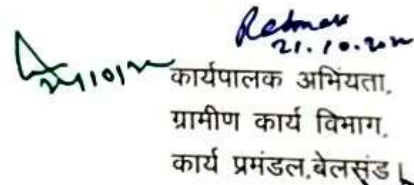 21.10.20
कार्यपालक अभियंता,
ग्रामीण कार्य विभाग,
कार्य प्रमंडल,बेलसंड